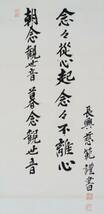 念々從心起念々不離心
朝念觀世音暮念觀世音
長興慈範謹書